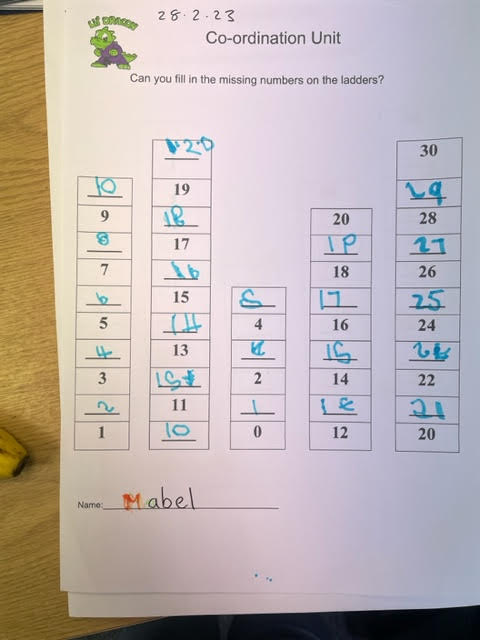 28.2.23
LIL' DRAGON
Co-ordination Unit
Can you fill in the missing numbers on the ladders?
20 30
10 19 29
9 18 20 28
8 17 27
7 16 18 26
6 15 17 25
5 14 4 16 24
4 13 15
3 2 14 22
2 11 1 21
1 10 0 12 20
Name: Mabel